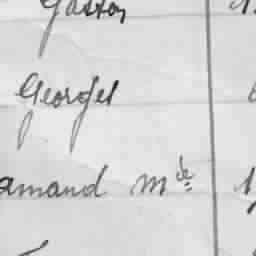 Gaston
Georges
amand Mde